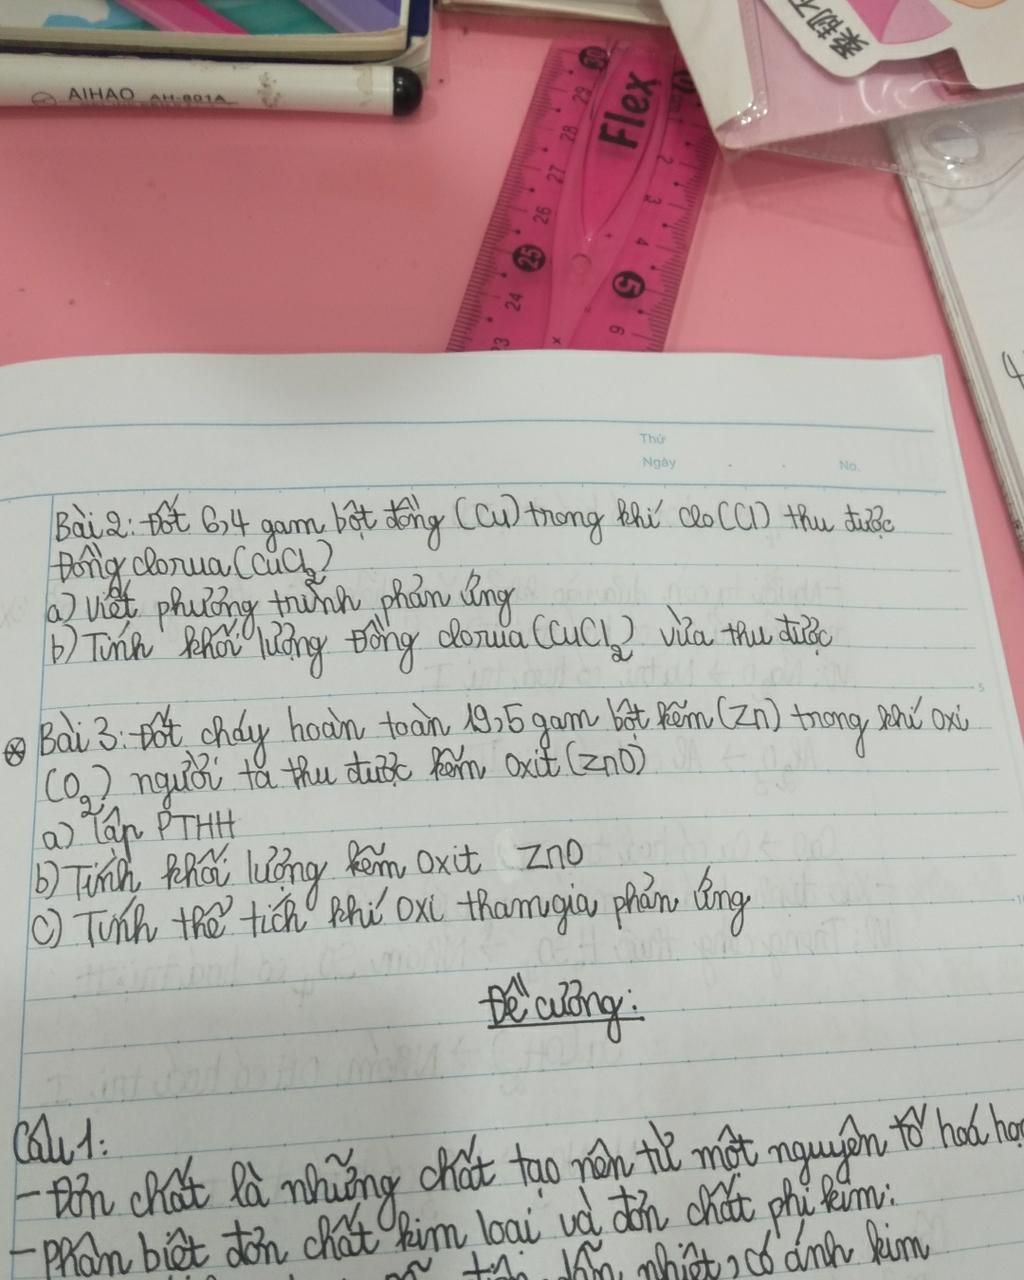 AIHAO AH-801A
Flex
30
29
28
27
26
25
24
23
2
3
4
5
6
Thứ
Ngày
No.
Bài 2: Đốt 6,4 gam bột đồng (Cu) trong khí clo (Cl) thu được
Đồng clorua (CuCl2)
a) Viết phương trình phản ứng
b) Tính khối lượng Đồng clorua (CuCl2) vừa thu được
5
Bài 3: Đốt cháy hoàn toàn 19,5 gam bột kẽm (Zn) trong khí oxi
(O2) người ta thu được kẽm oxit (ZnO)
a) Lập PTHH
b) Tính khối lượng kẽm oxit ZnO
c) Tính thể tích khí oxi tham gia phản ứng
Đề cương:
Câu 1:
- Đơn chất là những chất tạo nên từ một nguyên tố hoá học
- Phân biệt đơn chất kim loại và đơn chất phi kim:
dẫn nhiệt, có ánh kim